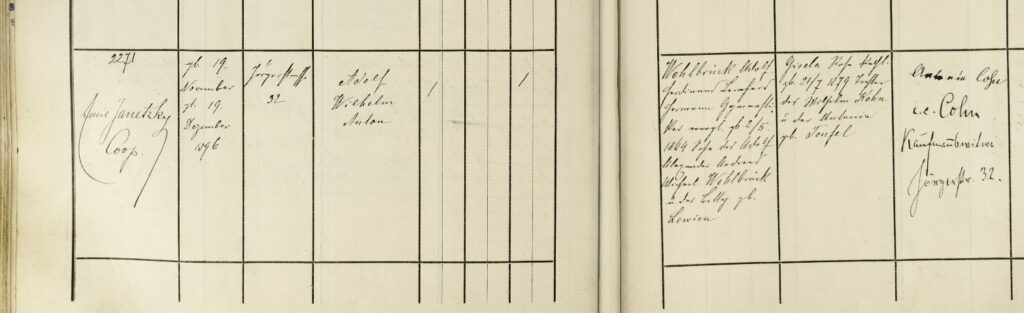 2271
Janetzky
Coop.
gb. 19.
November
gt. 19.
Dezember
1896
Jörgerstraße
32
Adolf
Wilhelm
Anton
1
1
Wohlbrück Adolf
Ferdinand Bernhard
Hermann
evangl. gb 2/5.
1864 Sohn des Adolf
Alexander Andreas
Michael Wohlbrück
u der Betty gb.
Lewien
Gisela Rosa kathl.
gb. 21/7 1879 Tochter
des Wilhelm Kohn
u der Antonia
gb.
Antonia Cohn
i.e. Cohn
Kaufmannswitwe
Jörgerstr. 32.